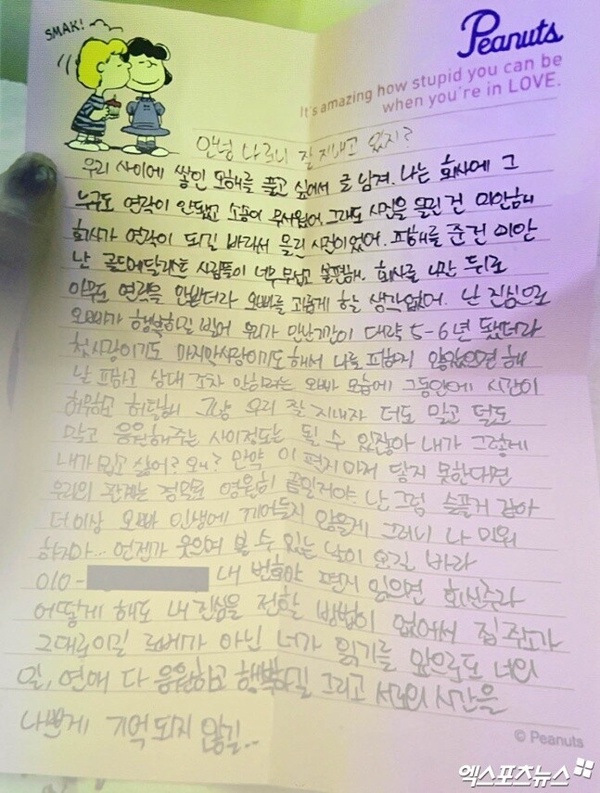 SMAK!
Peanuts
It's amazing how stupid you can be
when you're in LOVE.
안녕 나 잘 지내고 있지?
우리 사이에 쌓인 오해를 풀고 싶어서 글 남겨. 나는 회사에 그
누구도 연락이 안됐고 소송이 무서웠어. 그래도 사진을 올린 건 미안해
회사가 연락이 되길 바라서 올린 사진이었어. 피해를 준건 미안
난 골드메달리스트 사람들이 너무 무섭고 슬펐어. 회사를 나간 뒤로
아무도 연락을 안받더라 오빠를 괴롭게 할 생각없어. 난 진심으로
오빠가 행복하길 빌어 우리가 만난기간이 대략 5-6년 됐더라
첫사랑이기도 마지막사랑이기도해서 나를 피하지 않았으면 해
날 피하고 상대 조차 안하려는 오빠 모습에 그동안에 시간이
허무하고 허탈해 그냥 우리 잘 지내자 더도 말고 덜도
말고 응원해주는 사이정도는 될 수 있잖아 내가 그렇게
내가 밉고 싫어? 왜? 만약 이 편지마저 닿지 못한다면
우리의 관계는 정말로 영원히 끝일거야. 난 그럼 슬플거 같아
더 이상 오빠 인생에 끼어들지 않을게 그러니 나 미워
하지마... 언젠가 웃으며 볼 수 있는 날이 오길 바라
010- 내 번호야 편지 읽으면 회신주라
어떻게 해도 내 진심을 전할 방법이 없어서 집 주소가
그대로이길 로베가 아닌 너가 읽기를 앞으로도 너의
일, 연애 다 응원하고 행복하길 그리고 서로의 시간을
나쁘게 기억되지 않길..
© Peanuts
엑스포츠뉴스